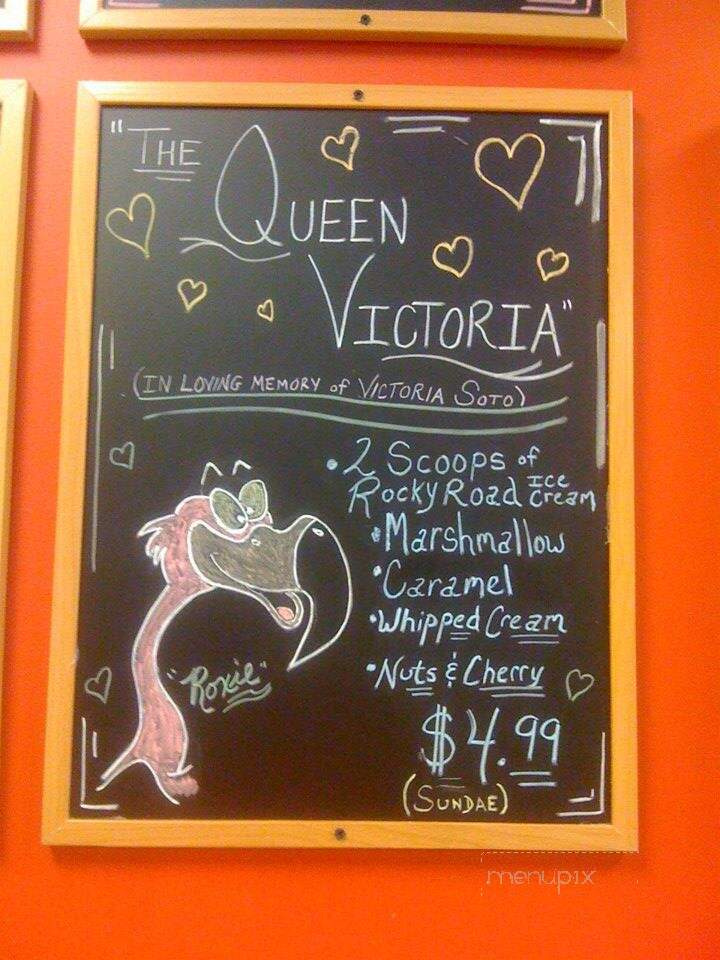 "THE
QUEEN
VICTORIA"
(IN LOVING MEMORY of VICTORIA SOTO)
• 2 Scoops of
Rocky Road Ice Cream
• Marshmallow
• Caramel
• Whipped Cream
• Nuts & Cherry
"Roxie"
$4.99
(SUNDAE)
menupix